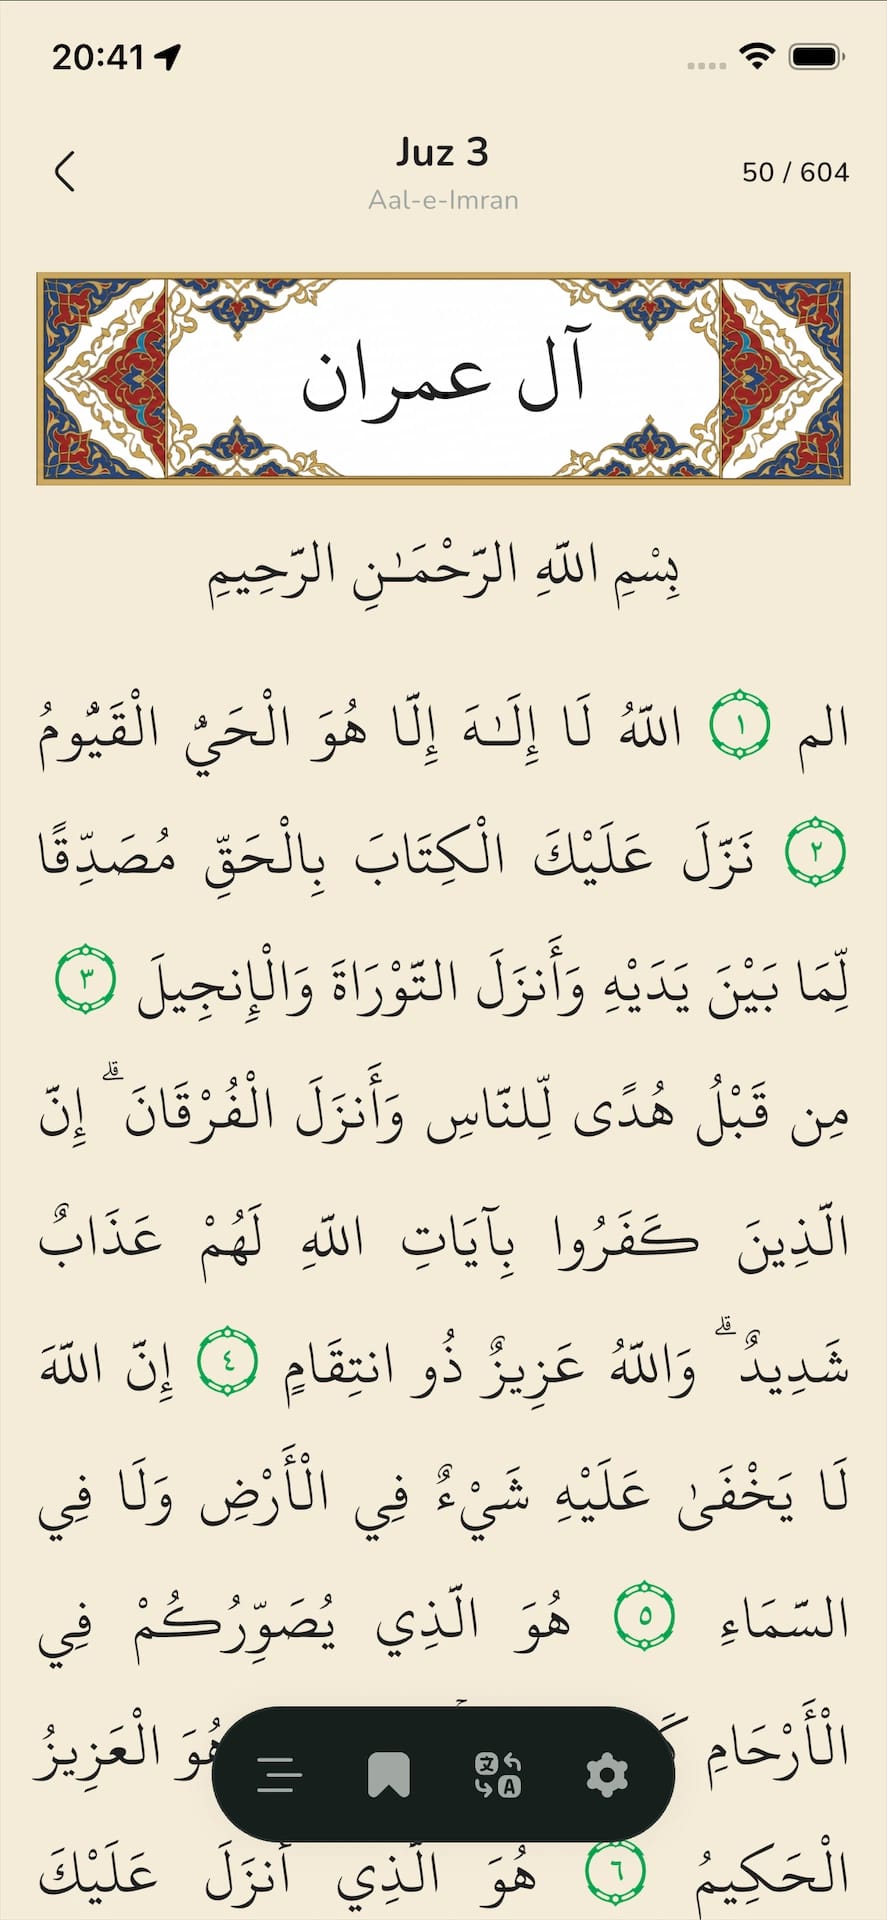 20:41
Juz 3
Aal-e-Imran
50 / 604
آل عمران
بِسْمِ اللَّهِ الرَّحْمَـٰنِ الرَّحِيمِ
الم ١ اللَّهُ لَا إِلَـٰهَ إِلَّا هُوَ الْحَيُّ الْقَيُّومُ
٢ نَزَّلَ عَلَيْكَ الْكِتَابَ بِالْحَقِّ مُصَدِّقًا
لِّمَا بَيْنَ يَدَيْهِ وَأَنزَلَ التَّوْرَاةَ وَالْإِنجِيلَ ٣
مِن قَبْلُ هُدًى لِّلنَّاسِ وَأَنزَلَ الْفُرْقَانَ ۗ إِنَّ
الَّذِينَ كَفَرُوا بِآيَاتِ اللَّهِ لَهُمْ عَذَابٌ
شَدِيدٌ ۗ وَاللَّهُ عَزِيزٌ ذُو انتِقَامٍ ٤ إِنَّ اللَّهَ
لَا يَخْفَىٰ عَلَيْهِ شَيْءٌ فِي الْأَرْضِ وَلَا فِي
السَّمَاءِ ٥ هُوَ الَّذِي يُصَوِّرُكُمْ فِي
الْأَرْحَامِ هُوَ الْعَزِيزُ
الْحَكِيمُ ٦ هُوَ الَّذِي أَنزَلَ عَلَيْكَ